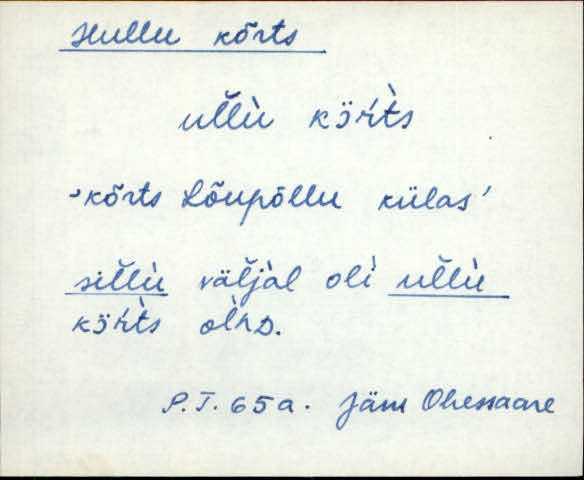 Hullu kõrts
ul̆l̀ù kö̭r̀t̀s
'kõrts Lõupõllu külas'
sil̆l̀ù väl̆j̀al oli ul̆l̀ù
kö̭r̀t̀s ol̀nD.
P.T. 65a. Jäm Ohessaare